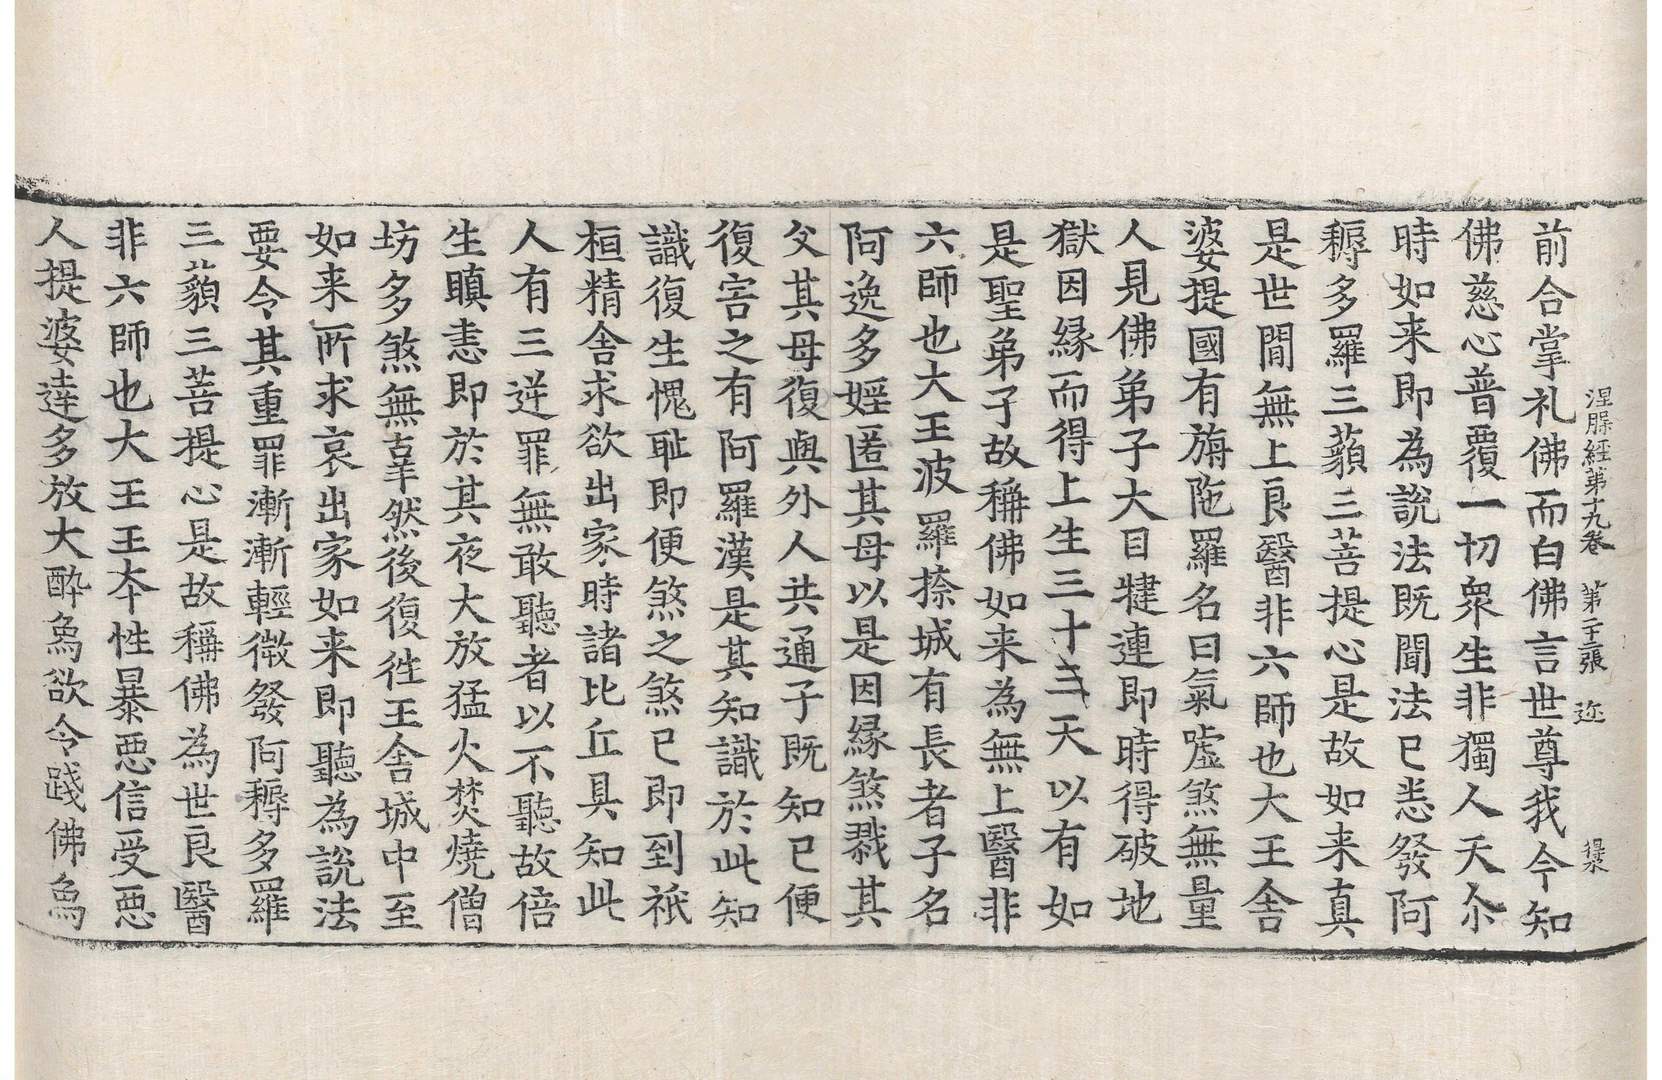 涅槃經第十九卷　第二十三張　迩
前合掌礼佛而白佛言世尊我今知
佛慈心普覆一切眾生非獨人天尒
時如来即為説法既聞法已悉發阿
耨多羅三藐三菩提心是故如来真
是世間無上良醫非六師也大王舍
婆提國有旃陁羅名曰氣嘘煞無量
人見佛弟子大目犍連即時得破地
獄因縁而得上生三十三天以有如
是聖弟子故稱佛如来為無上醫非
六師也大王波羅捺城有長者子名
阿逸多婬匿其母以是因縁煞戮其
父其母復與外人共通子既知已便
復害之有阿羅漢是其知識於此知
識復生愧耻即便煞之煞已即到祇
桓精舍求欲出家時諸比丘具知此
人有三逆罪無敢聽者以不聽故倍
生瞋恚即於其夜大放猛火焚燒僧
坊多煞無辜然後復往王舍城中至
如来所求哀出家如来即聽為説法
要令其重罪漸漸輕微發阿耨多羅
三藐三菩提心是故稱佛為世良醫
非六師也大王王夲性暴惡信受惡
人提婆達多放大酔象欲令踐佛象